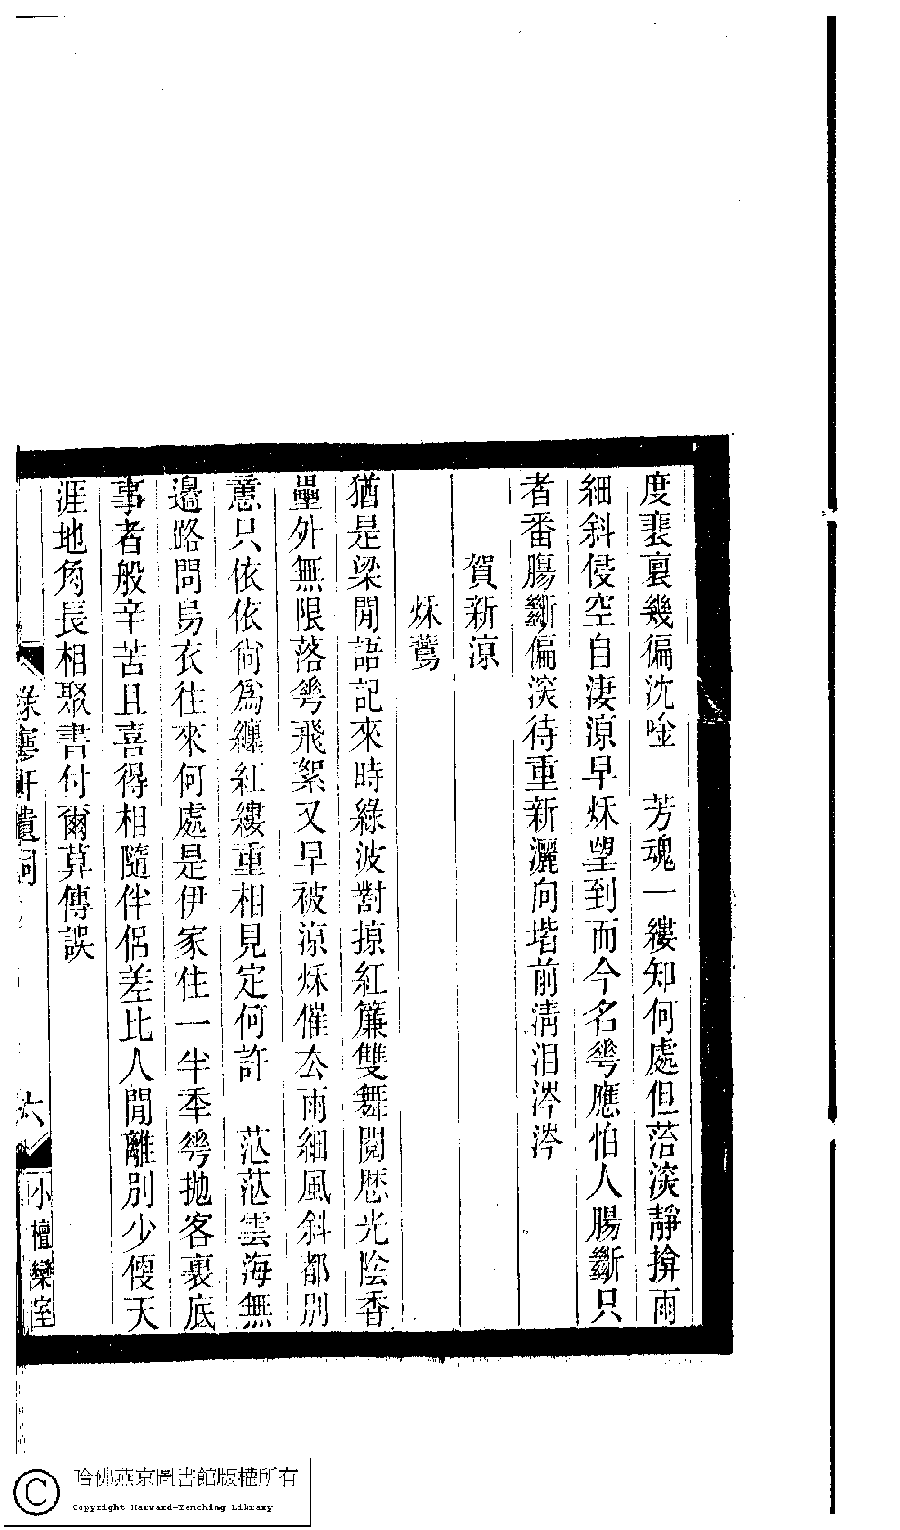 度裴褱幾徧沈唫　芳魂一縷知何處但菭淡靜揜雨
細斜侵空自淒涼早秌朢到而今名芲應怕人腸斷只
者番腸斷偏深待重新灑向堦前淸泪涔涔
賀新涼
秌鷰
猶是梁閒語記來時綠波對掠紅簾雙舞閱歷光陰香
壘外無限落芲飛絮又早被涼秌催厺雨細風斜都別
意只依依尙爲纏紅縷重相見定何許　茫茫雲海無
邊路問烏衣往來何處是伊家住一半秊芲拋客裏底
事者般辛苦且喜得相隨伴侶差比人閒離別少偠天
涯地角長相聚書付爾莫傳誤
遺詞
六
小檀欒室
哈佛燕京圖書館版權所有
Copyright Harvard-Yenching Library